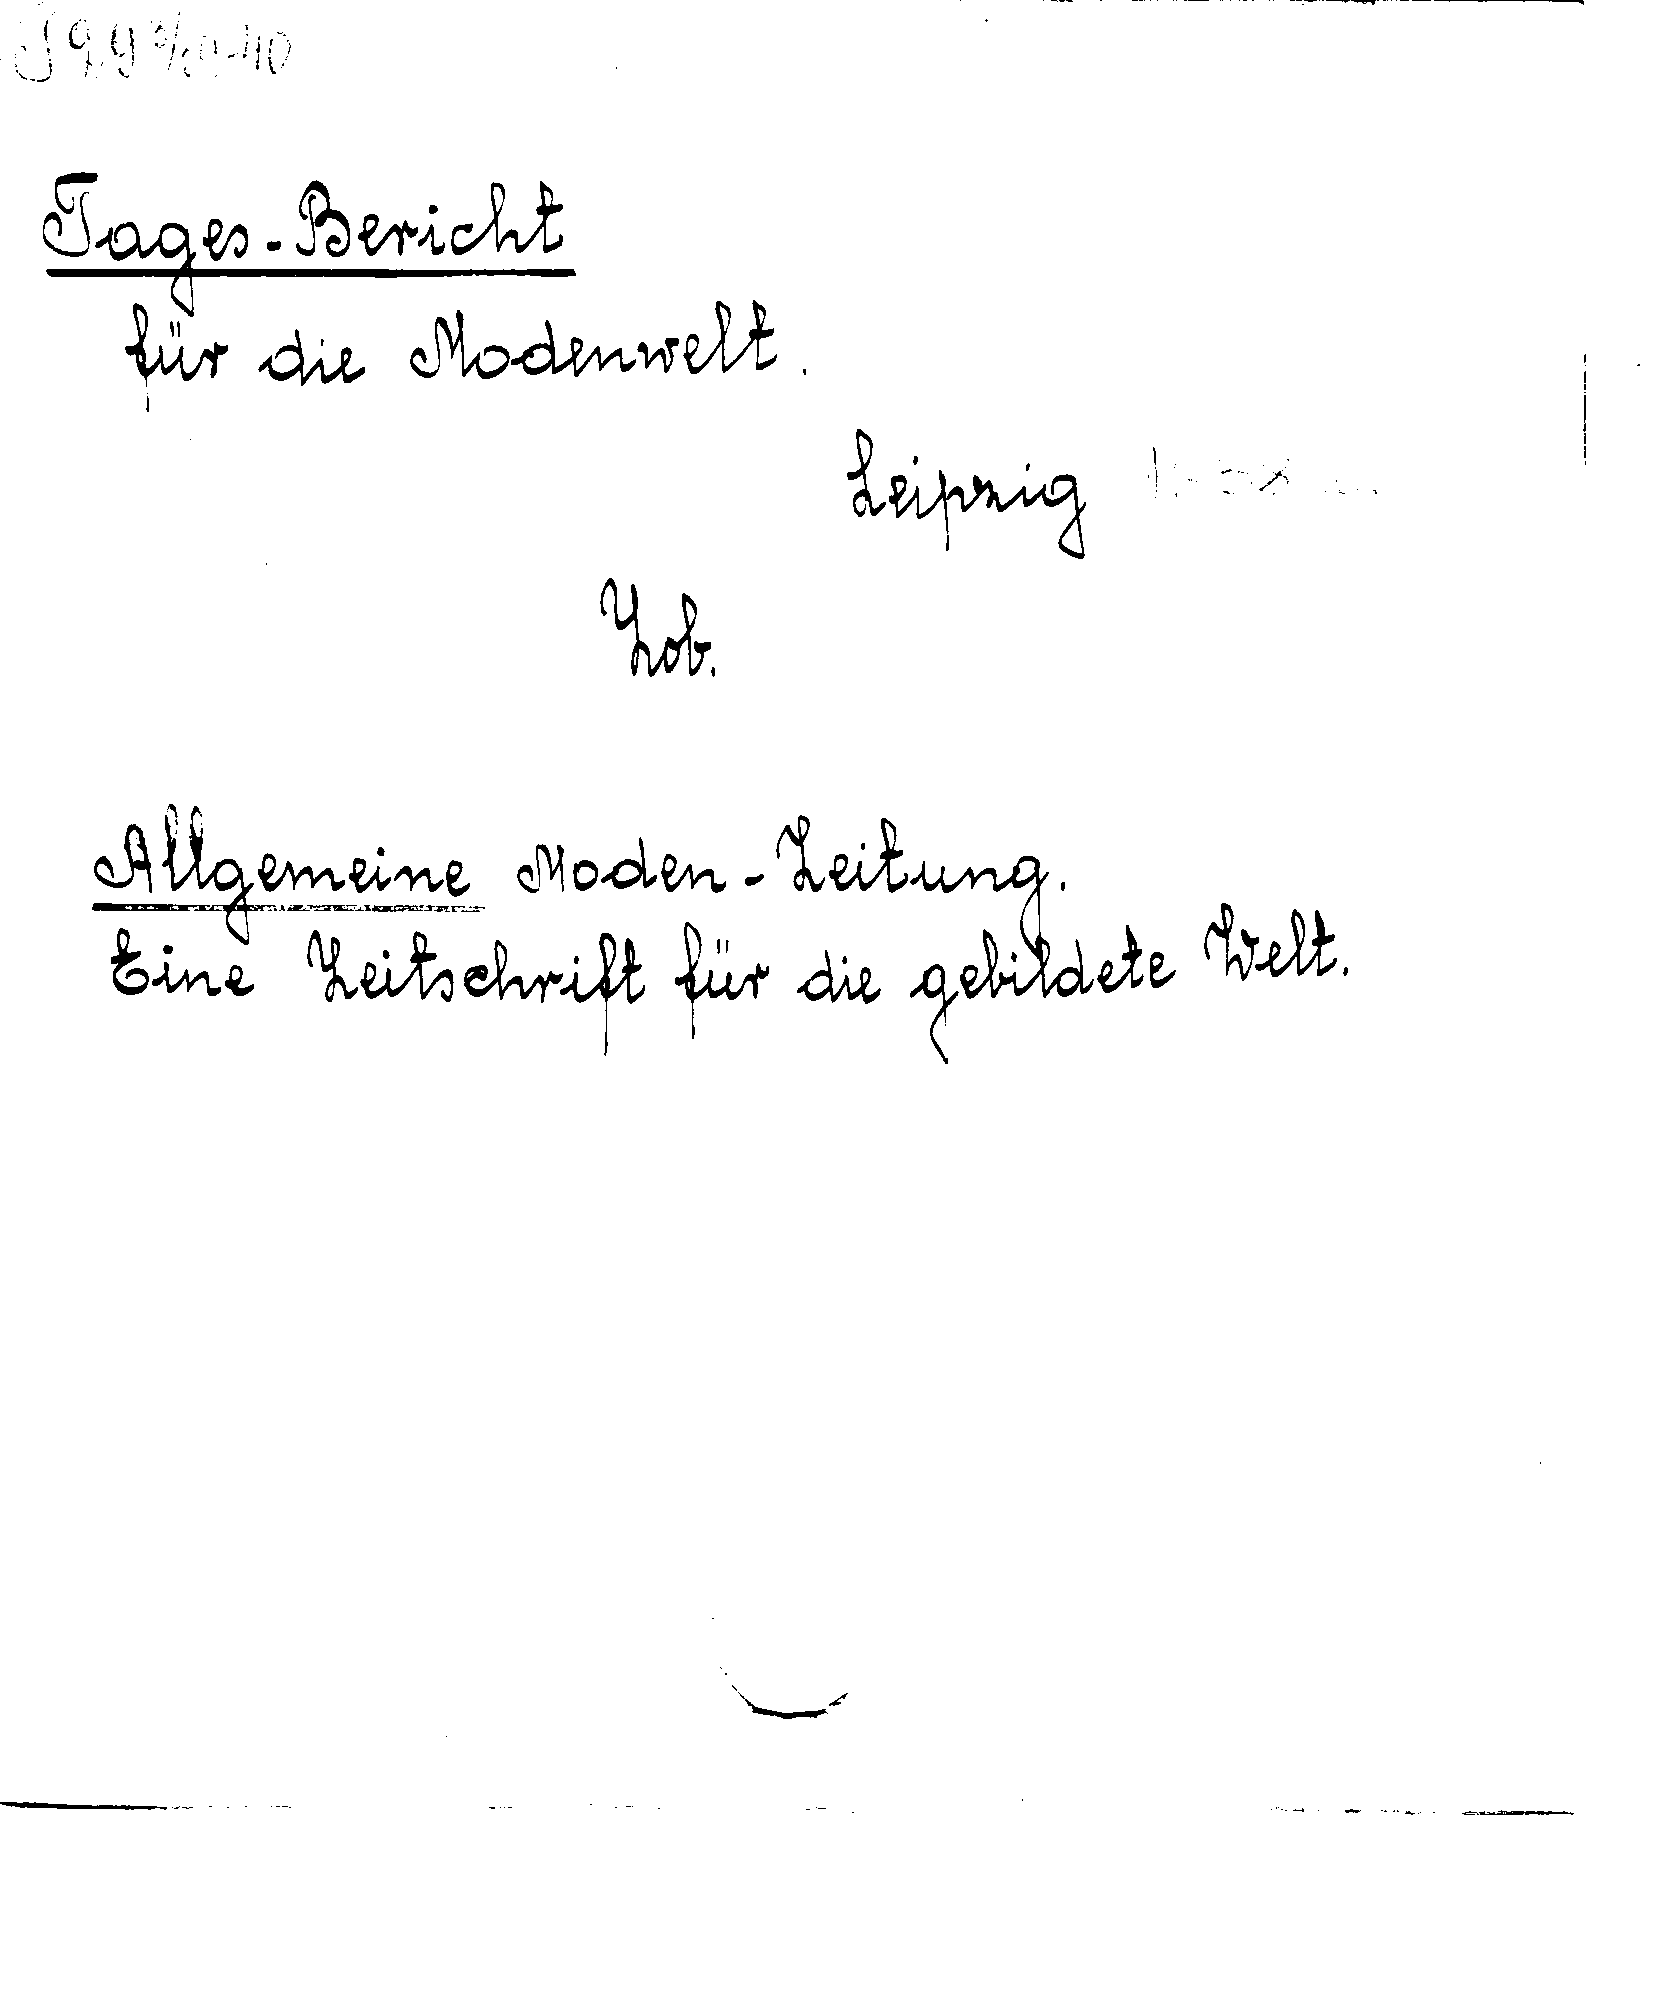 Tages-Bericht
für die Modenwelt.
Leipzig
Zob.
Allgemeine Moden-Zeitung.
Eine Zeitschrift für die gebildete Welt.